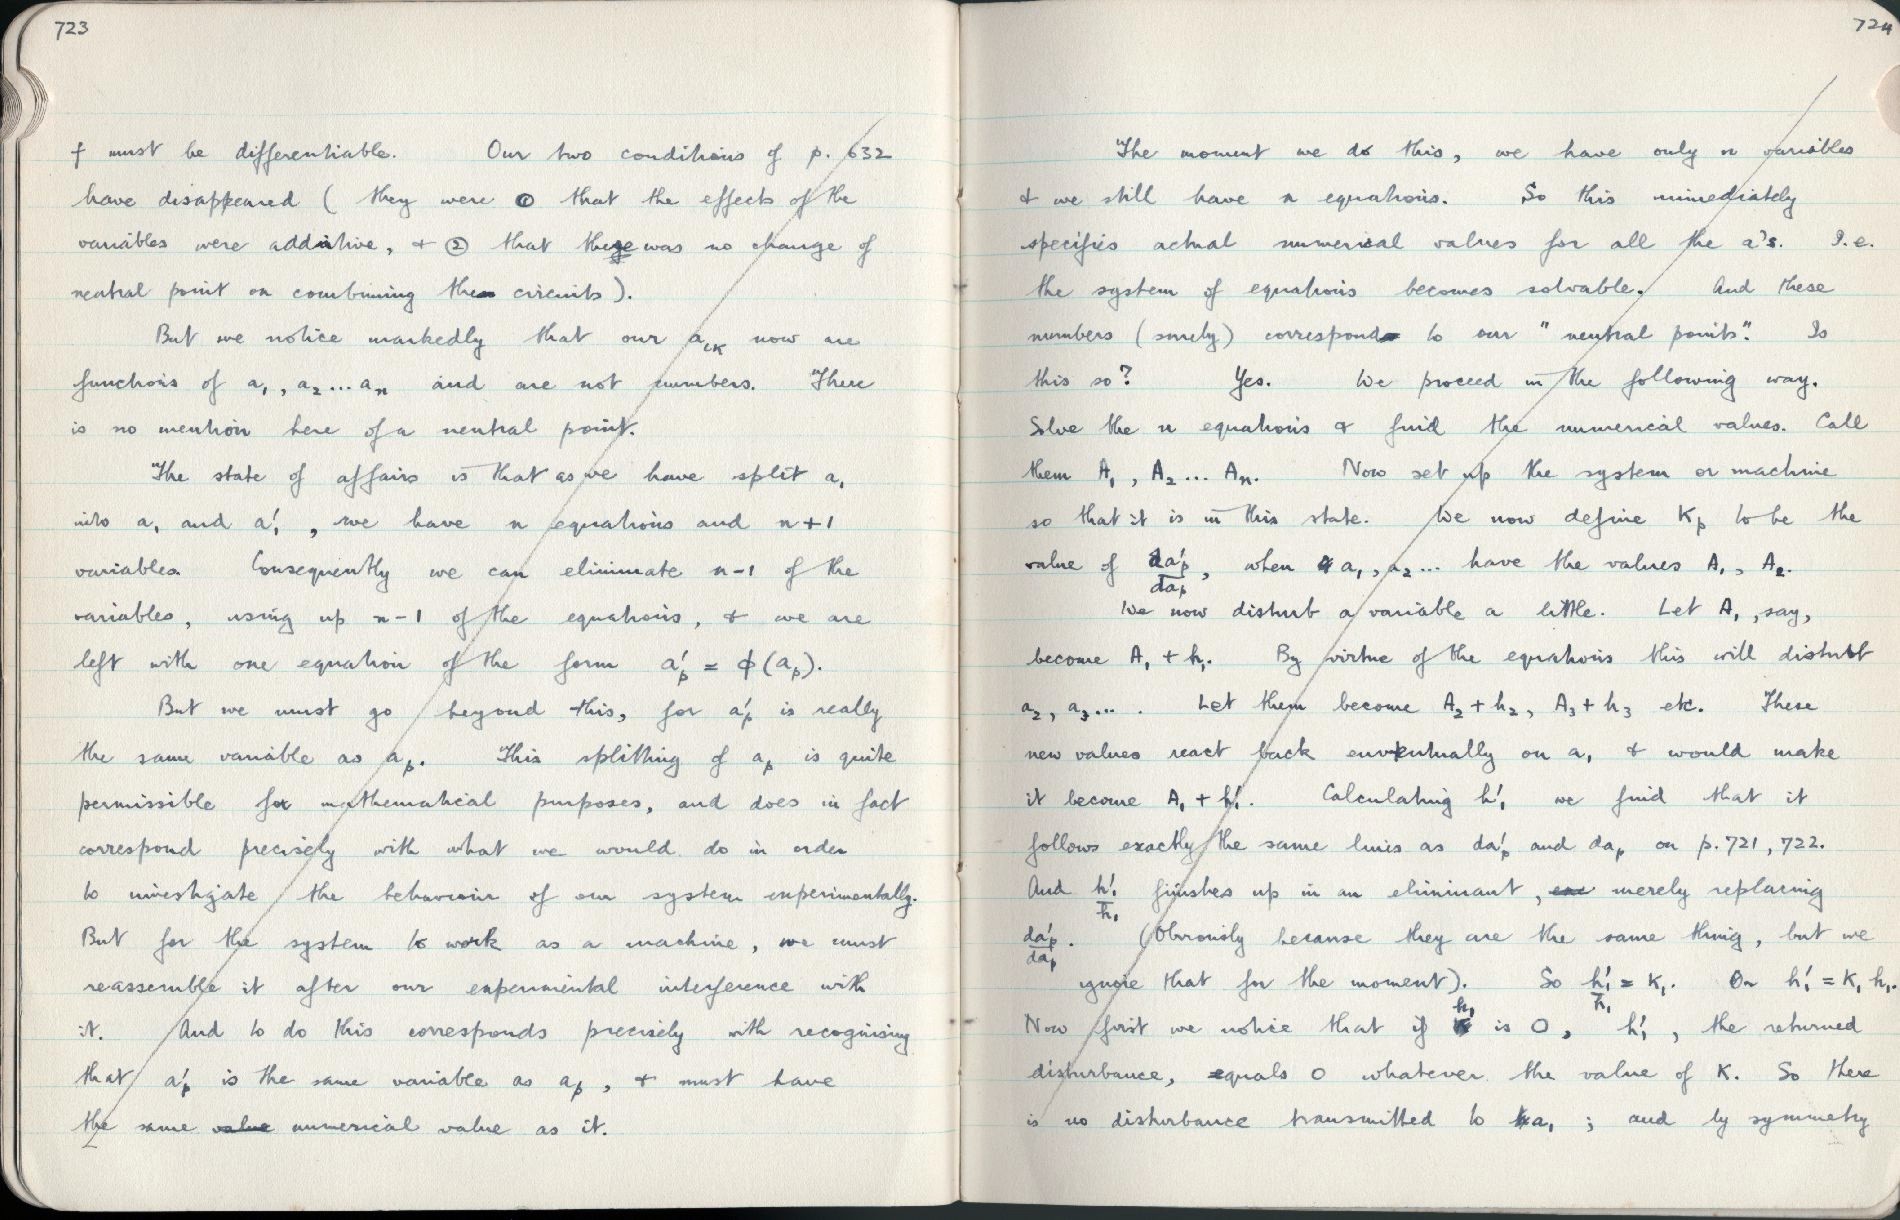 723
f must be differentiable. Our two conditions of p. 632
have disappeared ( they were ① that the effects of the
variables were additive, & ② that there was no change of
neutral point on combining the circuits ).
But we notice markedly that our a_ik now are
functions of a₁, a₂ ... aₙ and are not numbers. There
is no mention here of a neutral point.
The state of affairs is that as we have split a₁
into a₁ and a₁', we have n equations and n+1
variables. Consequently we can eliminate n-1 of the
variables, using up n-1 of the equations, & we are
left with one equation of the form a'ₚ = ϕ(aₚ).
But we must go beyond this, for a'ₚ is really
the same variable as aₚ. This splitting of aₚ is quite
permissible for mathematical purposes, and does in fact
correspond precisely with what we would do in order
to investigate the behaviour of our system experimentally.
But for the system to work as a machine, we must
reassemble it after our experimental interference with
it. And to do this corresponds precisely with recognising
that a'ₚ is the same variable as aₚ, & must have
the same value numerical value as it.
724
The moment we do this, we have only n variables
& we still have n equations. So this immediately
specifies actual numerical values for all the a's. I.e.
the system of equations becomes solvable. And these
numbers (surely) correspond to our "neutral points". Is
this so? Yes. We proceed in the following way.
Solve the n equations & find the numerical values. Call
them A₁, A₂ ... Aₙ. Now set up the system or machine
so that it is in this state. We now define Kₚ to be the
value of da'ₚ/daₚ, when a₁, a₂ ... have the values A₁, A₂.
We now disturb a variable a little. Let A₁, say,
become A₁ + h₁. By virtue of the equations this will disturb
a₂, a₃ ... . Let them become A₂ + h₂, A₃ + h₃ etc. These
new values react back eventually on a₁ & would make
it become A₁ + h'₁. Calculating h'₁ we find that it
follows exactly the same lines as da'ₚ and daₚ on p. 721, 722.
And h'₁/h₁ finishes up in an eliminant, merely replacing
da'ₚ/daₚ. (Obviously because they are the same thing, but we
ignore that for the moment). So h'₁/h₁ = K₁. Or h'₁ = K₁ h₁.
Now first we notice that if h₁ is 0, h'₁, the returned
disturbance, equals 0 whatever the value of K. So there
is no disturbance transmitted to a₁ ; and by symmetry